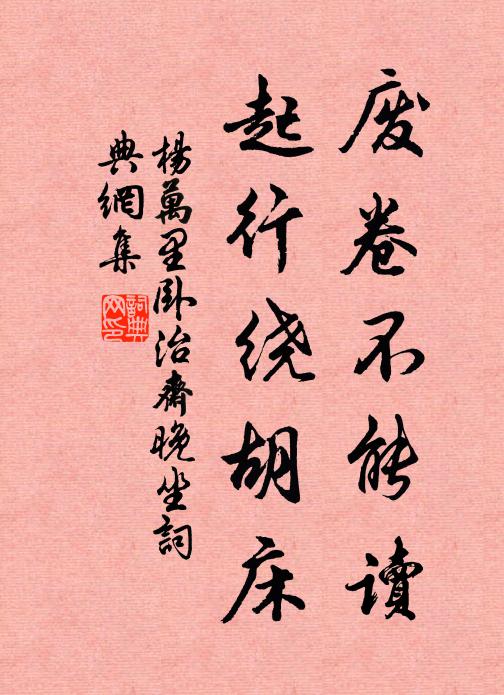 废卷不能讀
起行绕胡床
楊萬里卧治齋晚坐詞
典網集
詞典
网印